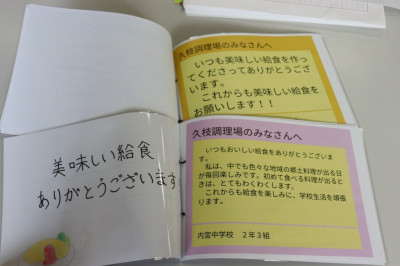 久枝調理場のみなさんへ
いつも美味しい給食を作っ
てくださってありがとうござ
います。
これからも美味しい給食を
お願いします！！
美味しい給食
ありがとうございます
久枝調理場のみなさんへ
いつもおいしい給食をありがとうございま
す。
私は、中でも色々な地域の郷土料理が出る日
が毎回楽しみです。初めて食べる料理が出ると
きは、とてもわくわくします。
これからも給食を楽しみに、学校生活を頑張
ります。
内宮中学校　２年３組